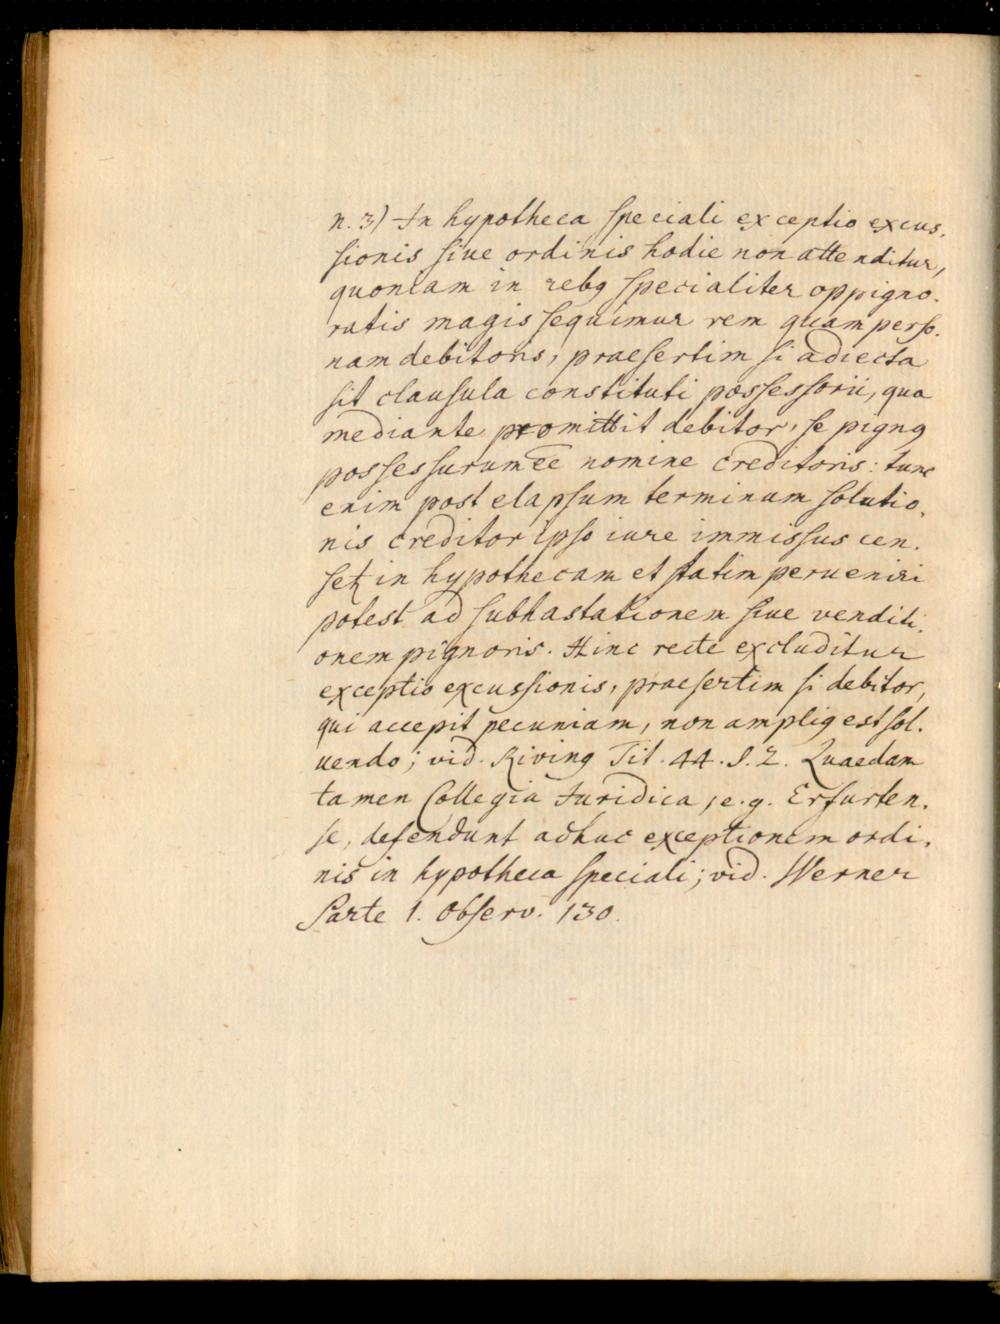 n. 3) In hypotheca speciali exceptio excus-
sionis sive ordinis hodie non attenditur,
quoniam in rebq specialiter oppigno-
ratis magis sequimur rem quam perso-
nam debitoris, praesertim si adiecta
sit clausula constituti possessorii, qua
mediante promittit debitor, se pignq
possessurum ee nomine creditoris: tunc
enim post elapsum terminum solutio-
nis creditor ipso iure immissus cen-
setr in hypothecam et statim perveniri
potest ad subhastationem sive venditi-
onem pignoris. Hinc recte excluditur
exceptio excussionis, praesertim si debitor,
qui accepit pecuniam, non ampliq est sol-
vendo; vid. Riving Tit. 44. S. 2. Quaedam
tamen Collegia Juridica, e.g. Erfurten-
se, defendunt adhuc exceptionem ordi-
nis in hypotheca speciali; vid. Werner
Parte 1. Observ. 130.